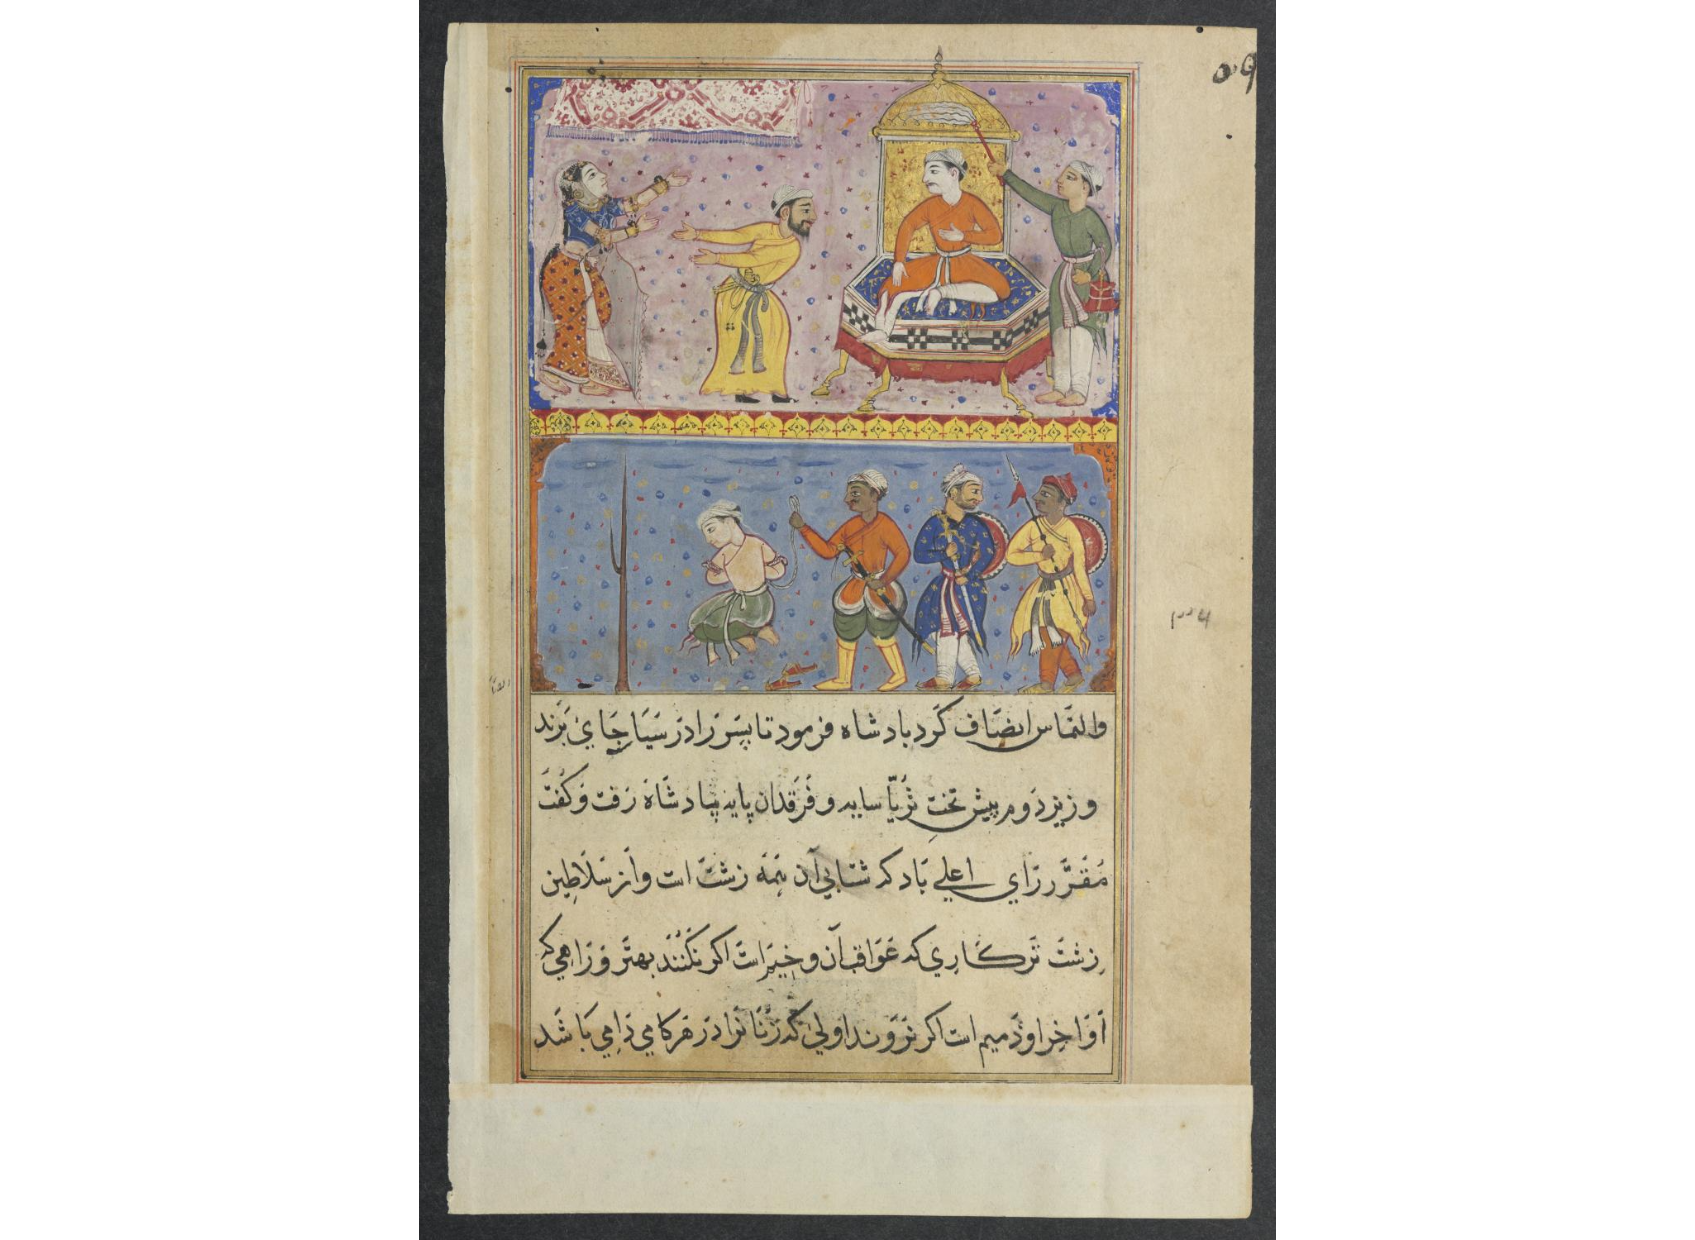 والتماس انصاف کرد بادشاه فرمود تا پسر را در سیاجای برند
وزیر دوم پیش تخت ثریا سایه و فرقدان پایه بادشاه رفت و کفت
مقرر رای اعلی باد که شتابی آن همه زشت است و از سلاطین
زشت تر کاری که عواقب آن وخیم است اکر نکنند بهتر و راهی که
اواخر او ذمیم است اکر نروند اولی که زنانرا در هر کامی دامی باشد